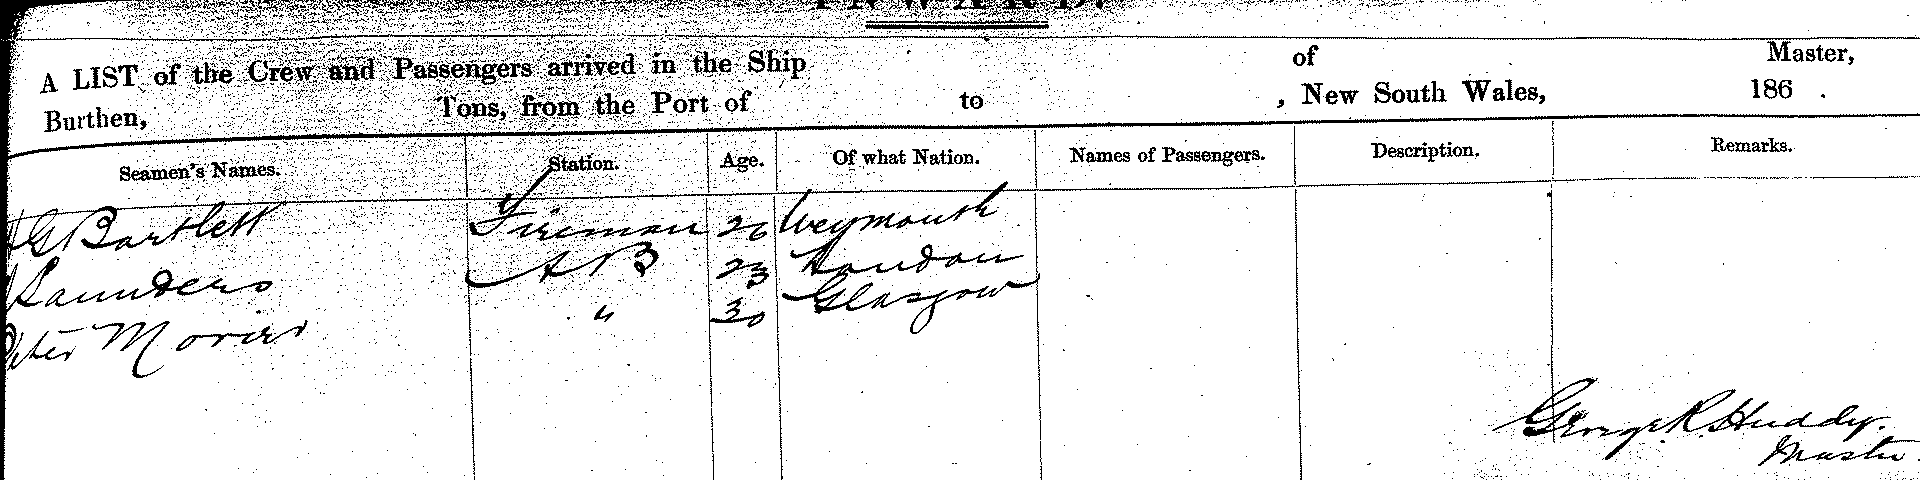 INWARD.
A LIST of the Crew and Passengers arrived in the Ship of Master,
Burthen, Tons, from the Port of to , New South Wales, 186 .
Seamen's Names. Station. Age. Of what Nation. Names of Passengers. Description. Remarks.
G Bartlett Fireman 26 Weymouth
Saunders A B 23 London
Peter " 30 Glasgow
George R. Huddy.
Master